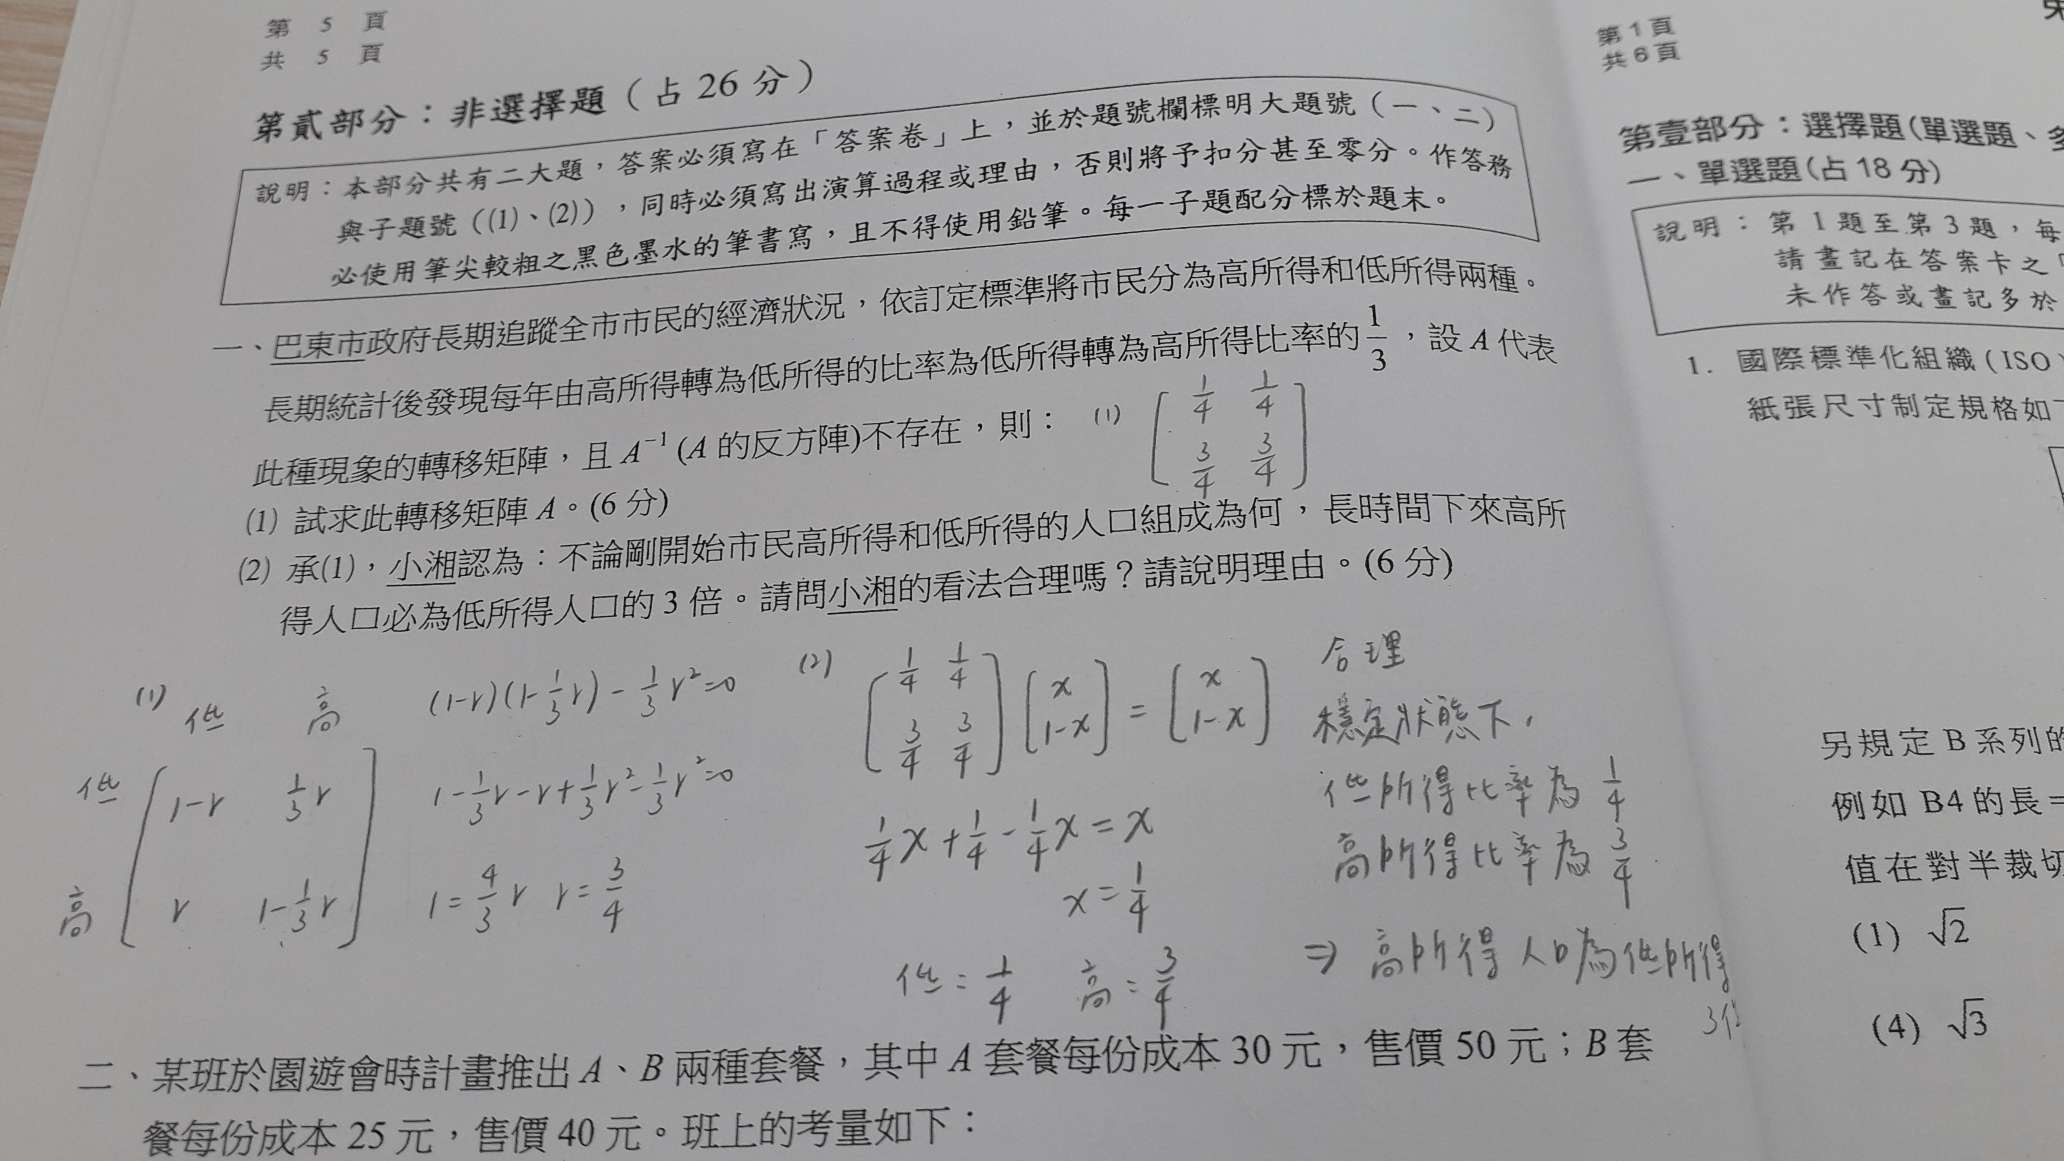 第 5 頁
共 5 頁
第貳部分：非選擇題（占 26 分）
說明：本部分共有二大題，答案必須寫在「答案卷」上，並於題號欄標明大題號（一、二）
與子題號（(1)、(2)），同時必須寫出演算過程或理由，否則將予扣分甚至零分。作答務
必使用筆尖較粗之黑色墨水的筆書寫，且不得使用鉛筆。每一子題配分標於題末。
一、巴東市政府長期追蹤全市市民的經濟狀況，依訂定標準將市民分為高所得和低所得兩種。
長期統計後發現每年由高所得轉為低所得的比率為低所得轉為高所得比率的 1/3，設 A 代表
此種現象的轉移矩陣，且 A⁻¹ (A 的反方陣)不存在，則：
(1) [1/4 1/4
3/4 3/4]
(1) 試求此轉移矩陣 A。(6 分)
(2) 承(1)，小湘認為：不論剛開始市民高所得和低所得的人口組成為何，長時間下來高所
得人口必為低所得人口的 3 倍。請問小湘的看法合理嗎？請說明理由。(6 分)
(1)
低 高
低 [1-r 1/3r
高 r 1-1/3r]
(1-r)(1-1/3r)-1/3r²=0
1-1/3r-r+1/3r²-1/3r²=0
1=4/3r r=3/4
(2) [1/4 1/4
3/4 3/4] [x
1-x] = [x
1-x]
1/4x+1/4-1/4x=x
x=1/4
低=1/4 高=3/4
合理
穩定狀態下，
低所得比率為 1/4
高所得比率為 3/4
⇒ 高所得人口為低所得
3倍
二、某班於園遊會時計畫推出 A、B 兩種套餐，其中 A 套餐每份成本 30 元，售價 50 元；B 套
餐每份成本 25 元，售價 40 元。班上的考量如下：
第 1 頁
共 6 頁
第壹部分：選擇題(單選題、
一、單選題(占 18 分)
說明：第 1 題至第 3 題，每
請畫記在答案卡之
未作答或畫記多於
1. 國際標準化組織(ISO
紙張尺寸制定規格如
另規定 B 系列的
例如 B4 的長=
值在對半裁切
(1) √2
(4) √3